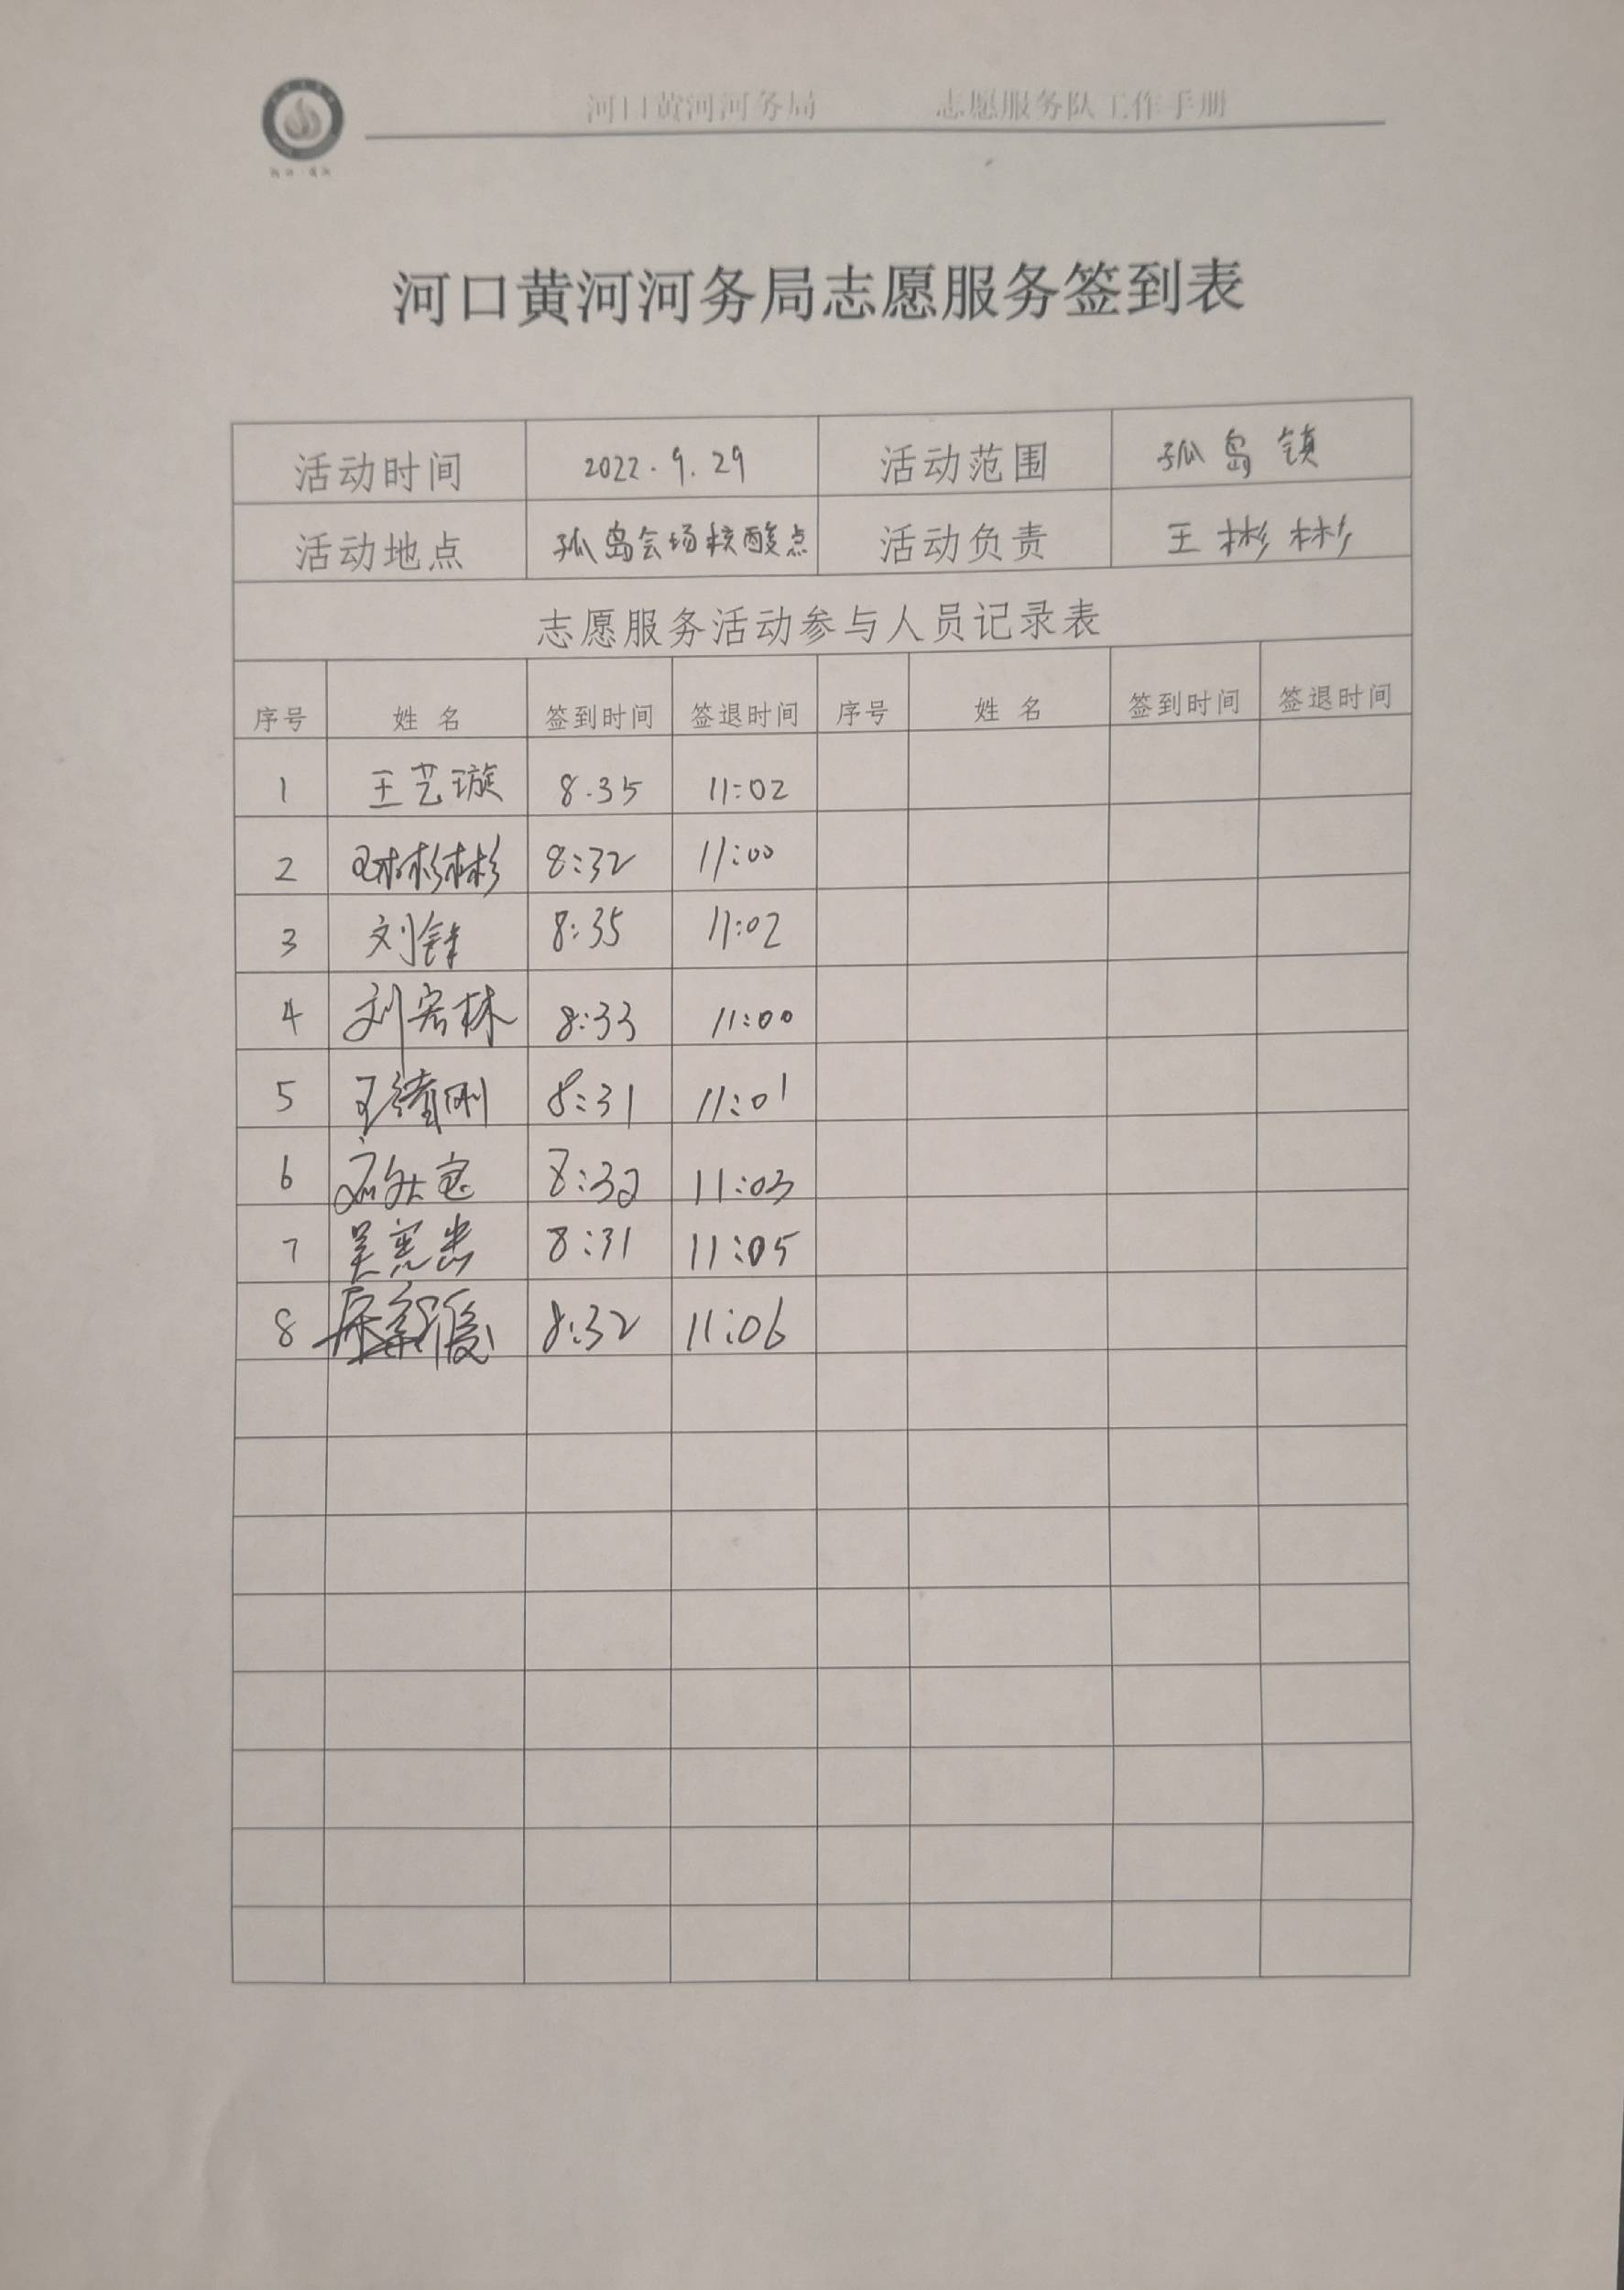 河口黄河河务局 志愿服务队工作手册
河口黄河河务局志愿服务签到表
活动时间 2022.9.29 活动范围 孤岛镇
活动地点 孤岛会场核酸点 活动负责 王彬彬
志愿服务活动参与人员记录表
序号 姓名 签到时间 签退时间 序号 姓名 签到时间 签退时间
1 王艺璇 8.35 11:02
2 王彬彬 8:32 11:00
3 刘 8:35 11:02
4 刘宏林 8:33 11:00
5 王 刚 8:31 11:01
6 8:32 11:03
7 吴宪忠 8:31 11:05
8 8:32 11:06